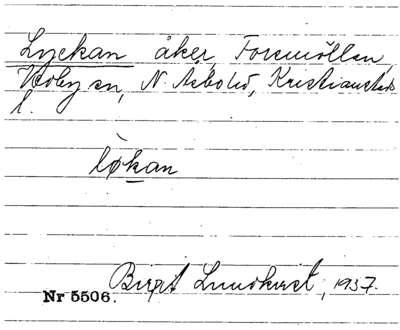 Lyckan åker, Foremöllan,
Hoby sn, N. Åsbo hd, Kristianstads
l.
lo̜kan
Birgit Lundkvist, 1937.
Nr 5506.